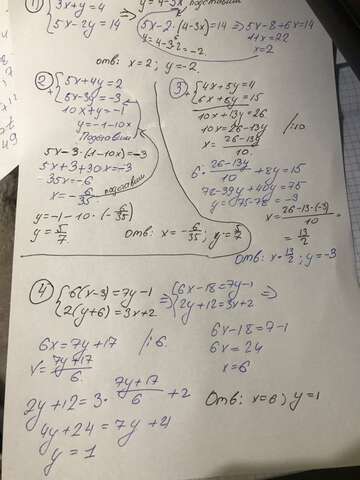 1) {3x+y=4
{5x-2y=14
=>
y=4-3x
5x-2·(4-3x)=14 => 5x-8+6x=14
y=4-3·2=-2
11x=22
x=2
Отв: x=2; y=-2.
2) {5x+4y=2
+ {5x-3y=-3
10x+y=-1
y=-1-10x
Подставим
5x-3·(-1-10x)=-3
5x+3+30x=-3
35x=-6
x=-6/35
подставим
y=-1-10·(-6/35)
y=5/7
Отв: x=-6/35; y=5/7
3) {4x+5y=11
+ {6x+8y=15
10x+13y=26
10x=26-13y /:10
x=26-13y/10
6·26-13y/10+8y=15
78-39y+40y=75
y=75-78=-3
x=26-13·(-3)/10=
=13/2
Отв: x=13/2; y=-3
4) {6(x-3)=7y-1
{2(y+6)=3x+2
=> {6x-18=7y-1
{2y+12=3x+2
=>
6x=7y+17 /:6
x=7y+17/6
2y+12=3·7y+17/6+2
4y+24=7y+21
y=1
6x-18=7-1
6x=24
x=6
Отв: x=6; y=1